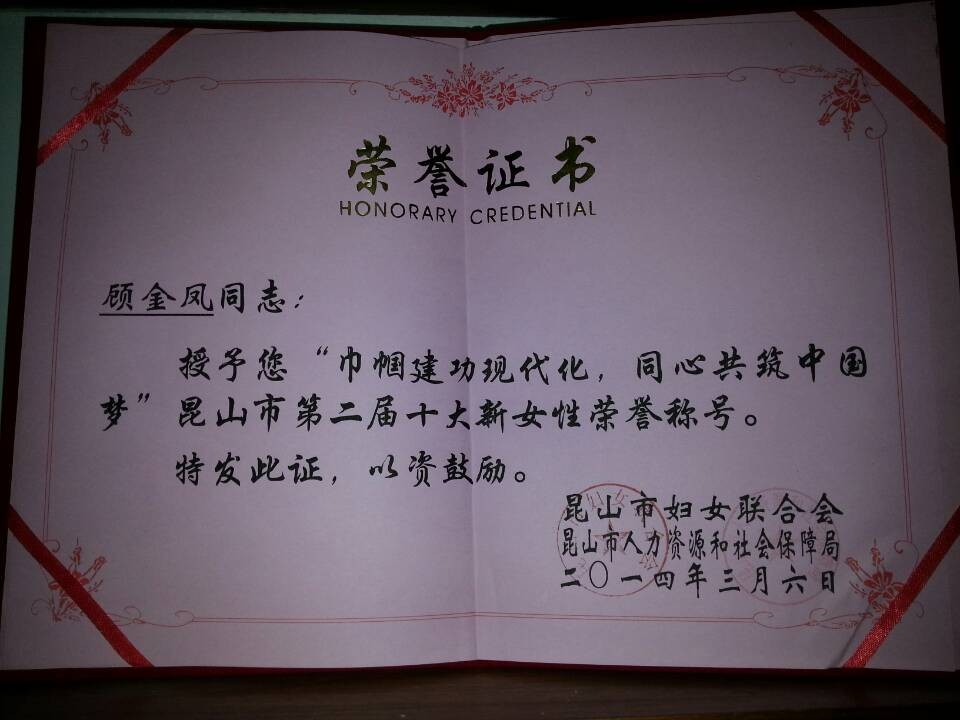 荣誉证书
HONORARY CREDENTIAL
顾金凤同志：
授予您“巾帼建功现代化，同心共筑中国
梦”昆山市第二届十大新女性荣誉称号。
特发此证，以资鼓励。
昆山市妇女联合会
昆山市人力资源和社会保障局
二〇一四年三月六日